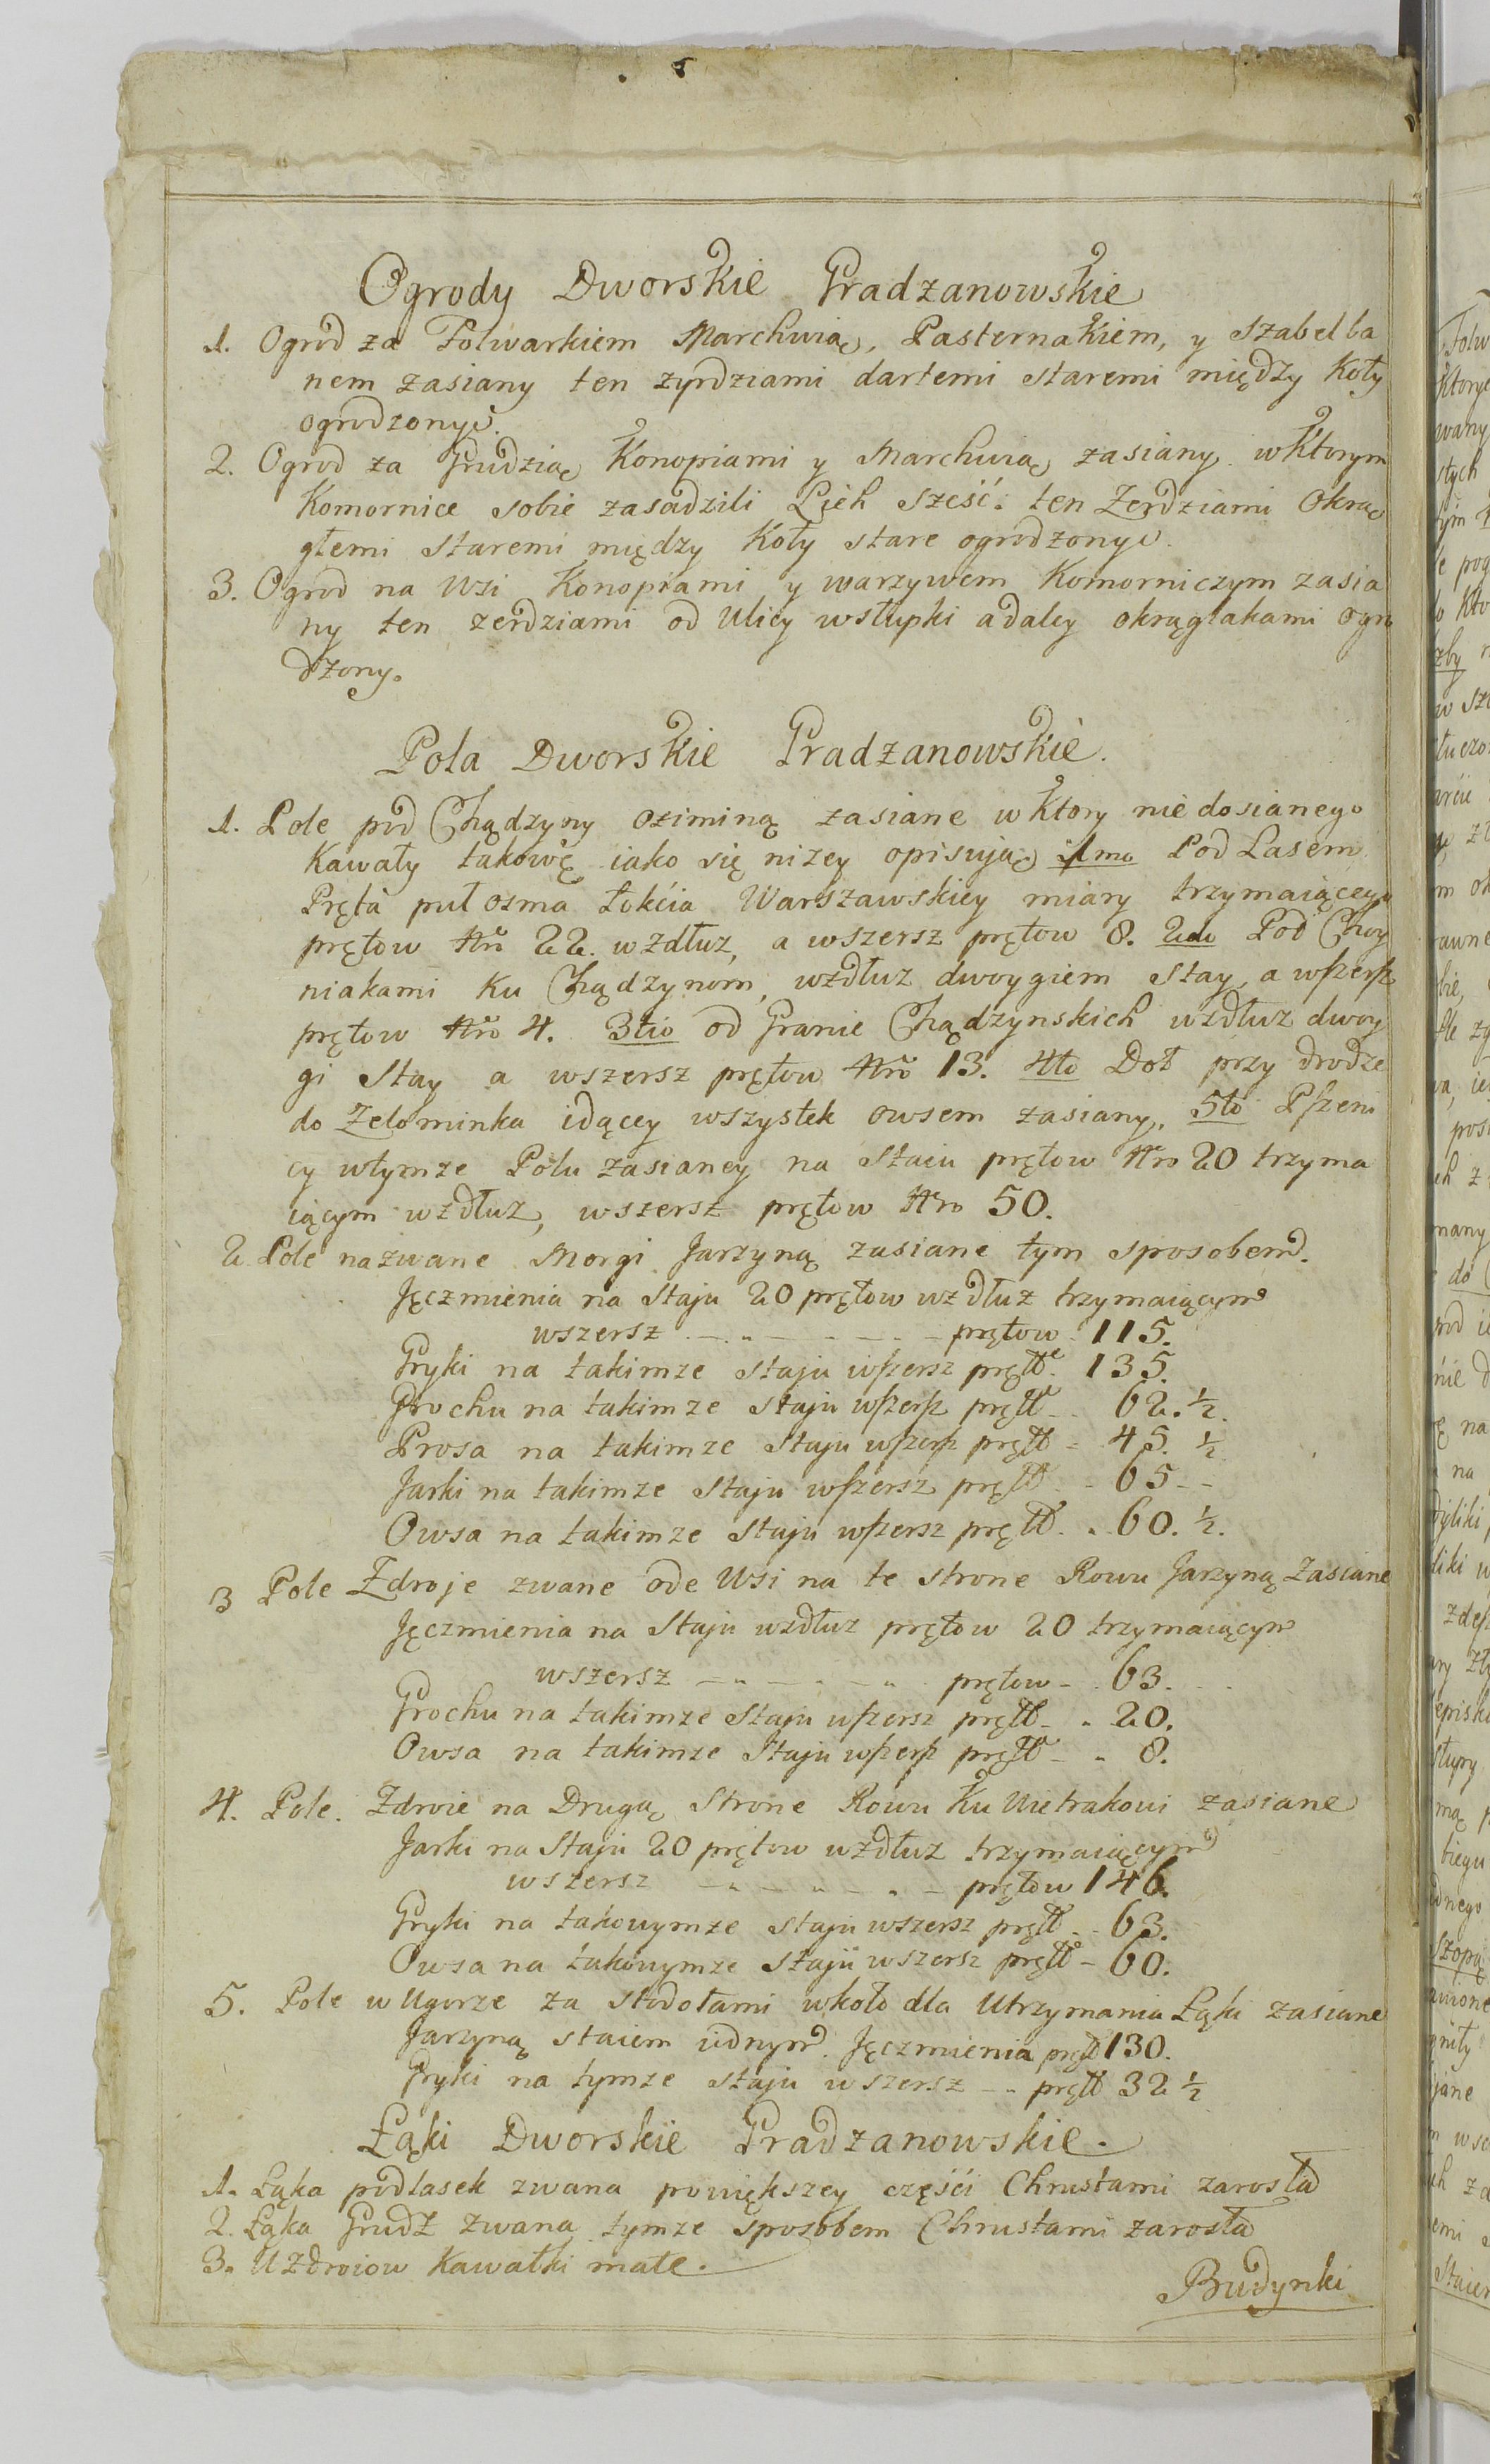 Ogrody Dworskie Gradzanowskie
1. Ogrod za Folwarkiem Marchwią, Pasternakiem, y szabelba
nem zasiany ten zyrdziami dartemi staremi między Koły
ogrodzony.
2. Ogrod za Grudzią Konopiami y Marchwią zasiany wktorym
Komornice sobie zasadzili Lich sześć. ten Zerdziami Okrą
głemi staremi między Koły stare ogrodzony.
3. Ogrod na Wsi Konopiami y warzywem Komorniczym zasia
ny ten zerdziami od Ulicy wsłupki adaley okrąglakami ogro
dzony.
Pola Dworskie Gradzanowskie.
1. Pole pod Chądzyny oziminą zasiane wktory niedosianego
Kawały takowę iako się nizey opisują 1mo Pod Lasem
Pręta puł ozma Łokcia Warszawskiey miary trzymaiącego
prętow Nro 22. wzdłuz, a wszersz prętow 8. 2do Pod Choy
niakami Ku Chądzynom, wzdłuz dwoygiem Stay, a wszersz
prętow Nro 4. 3tio od Granic Chądzynskich wzdłuz dwoy
gi Stay a wszersz prętow Nro 13. 4to Doł przy drodze
do Zelominka idącey wszystek owsem zasiany, 5to Pszeni
cy wtymze Polu zasianey na Staiu prętow Nro 20 trzyma
iącym wzdłuz, wszersz prętow Nro 50.
2 Pole nazwane Morgi Jarzyną zasiane tym sposobem.
Jęczmienia na Staju 20 prętow wzdłuz trzymaiącym
wszersz - - - - - prętow 115.
Gryki na takimze staju wszersz pręt. 135.
Grochu na takimze staju wszersz pręt. 62. ½.
Prosa na takimze Staju wszersz pręt - 45. ½
Jarki na takimze staju wszersz pręt - 65 - -
Owsa na takimze staju wszersz pręt. . 60. ½.
3 Pole Zdroje zwane ode Wsi na te strone Rowu Jarzyną Zasiane
Jęczmienia na Staju wzdłuz prętow 20 trzymaiącym
wszersz - - - - prętow - . 63.
Grochu na takimze Staju wszersz pręt - . 20.
Owsa na takimze Staju wszersz pręt - . 8.
4. Pole. Zdroie na Drugą Strone Rowu Ku Wietrakowi zasiane
Jarki na Staju 20 prętow wzdłuz trzymaiącym
wszersz - - - - - prętow 146.
Gryki na takowymze staju wszersz pręt - - 63.
Owsa na takowymze staju wszersz pręt - 60.
5. Pole w Ugorze za stodołami wkoło dla Utrzymania Łąki zasiane
Jarzyną staiem iednym. Jęczmienia pręt 130.
Gryki na tymze staju wszersz - - pręt 32 ½
Łąki Dworskie Gradzanowskie.
1. Łąka podlasek zwana powiększey części Chrustami zarosła
2. Łąka Grudź zwana tymze sposobem Chrustami zarosła
3. U Zdroiow Kawałki małe.
Budynki